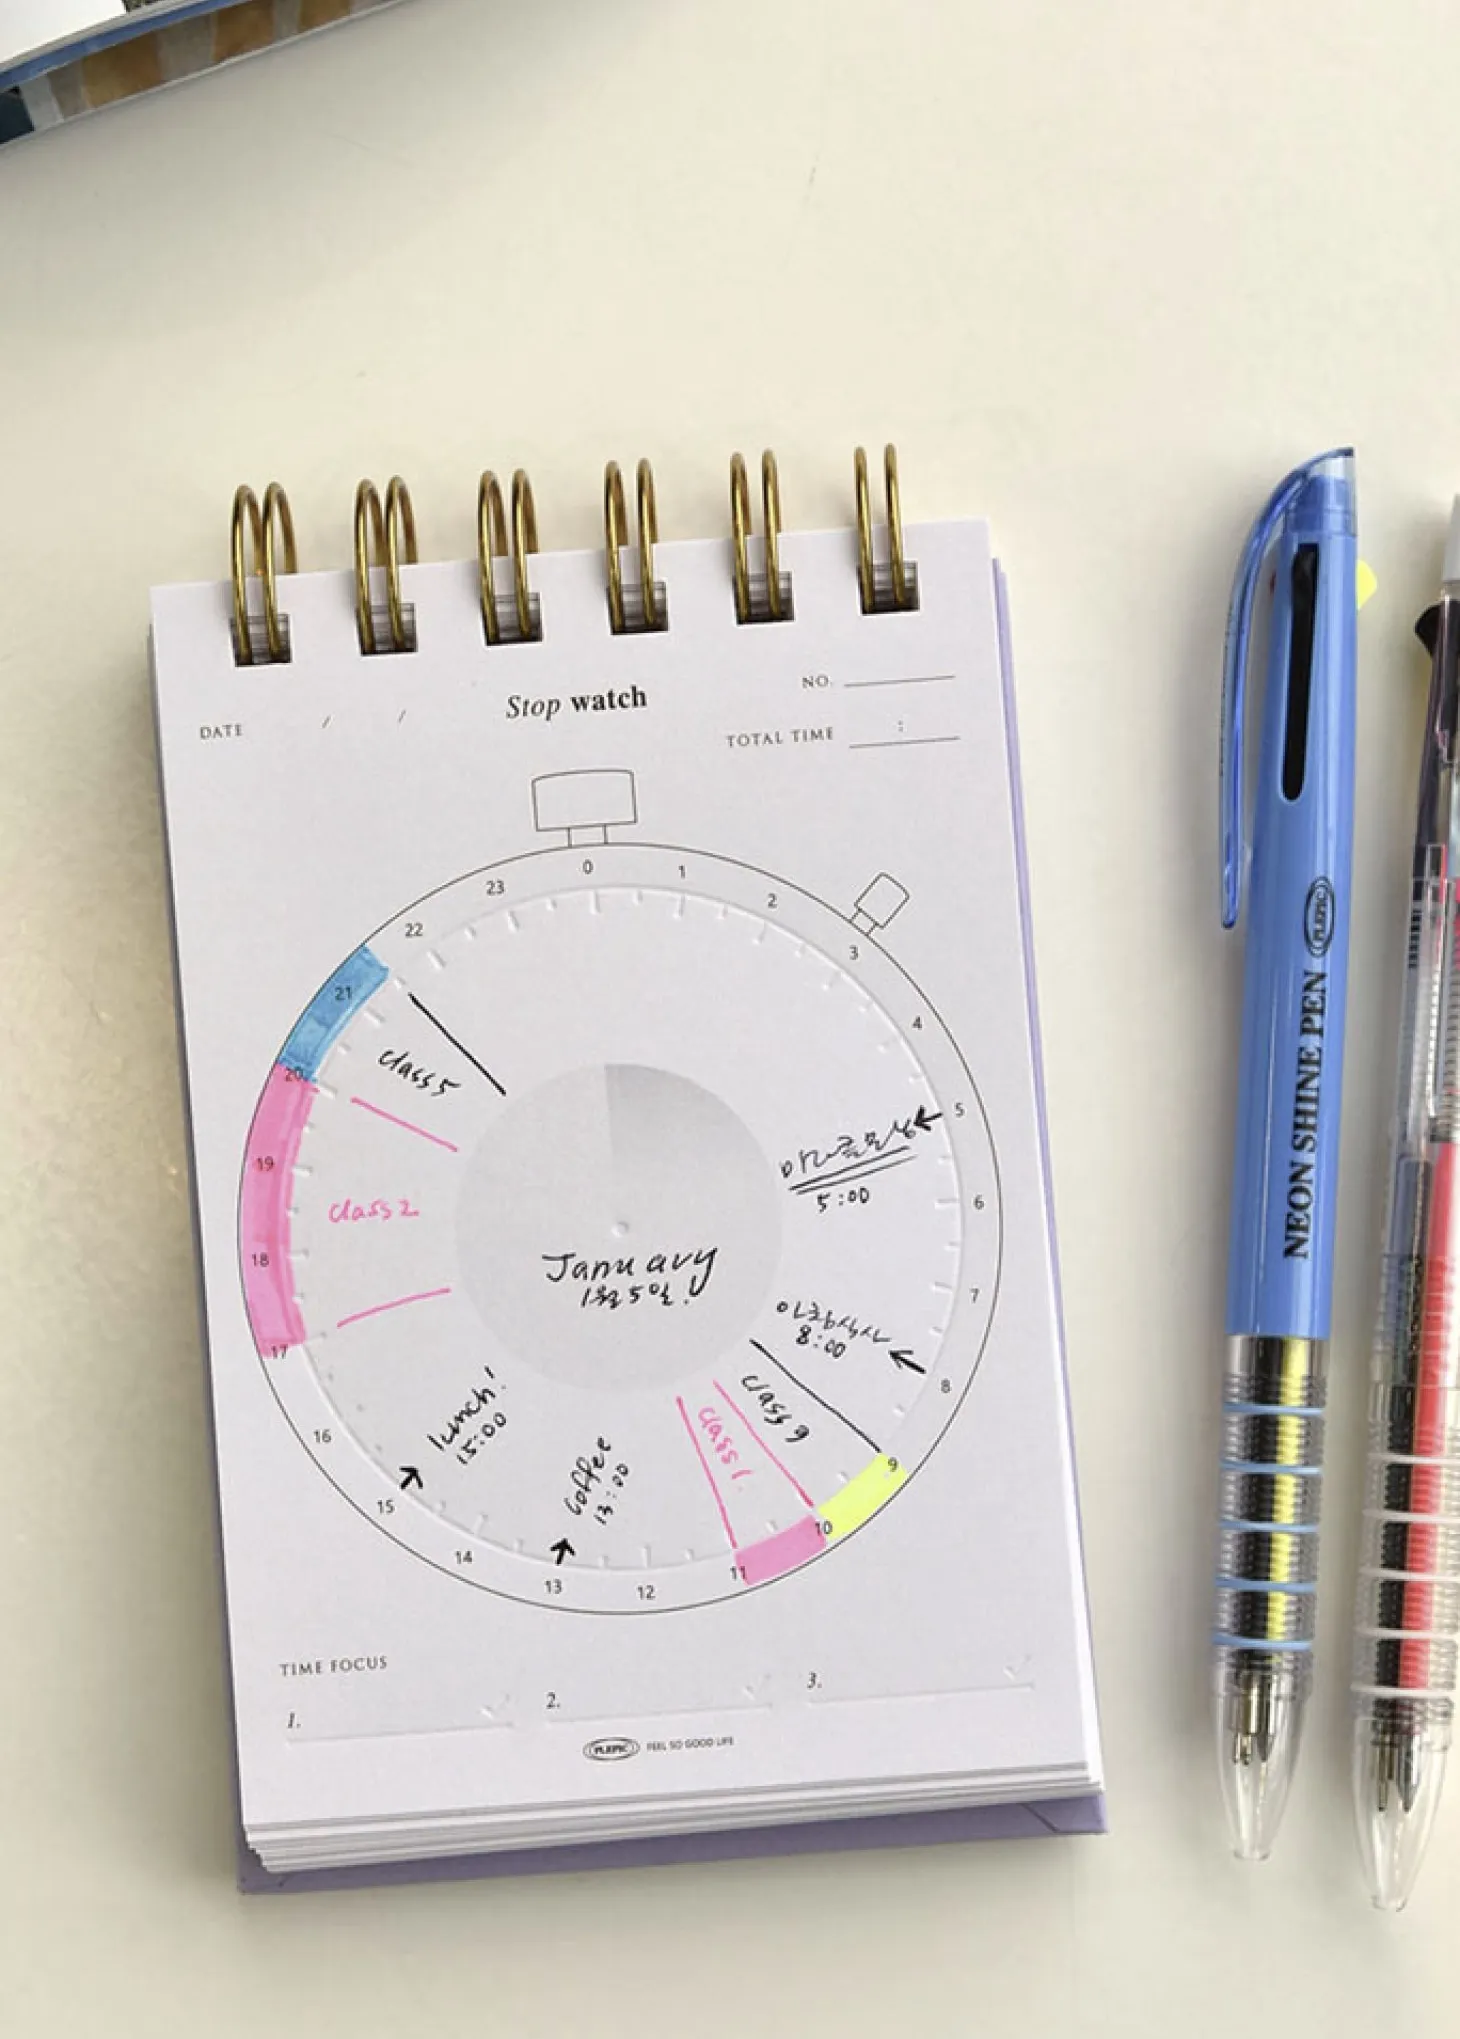 Stop watch
NO.
DATE / /
TOTAL TIME :
0
1
2
3
4
5
6
7
8
9
10
11
12
13
14
15
16
17
18
19
20
21
22
23
5:00
8:00
class 9
class 1.
coffee
13:00
lunch!
15:00
class 2
class 5
January
1월 5일.
TIME FOCUS
1.
2.
3.
PLEPIC FEEL SO GOOD LIFE
NEON SHINE PEN PLEPIC